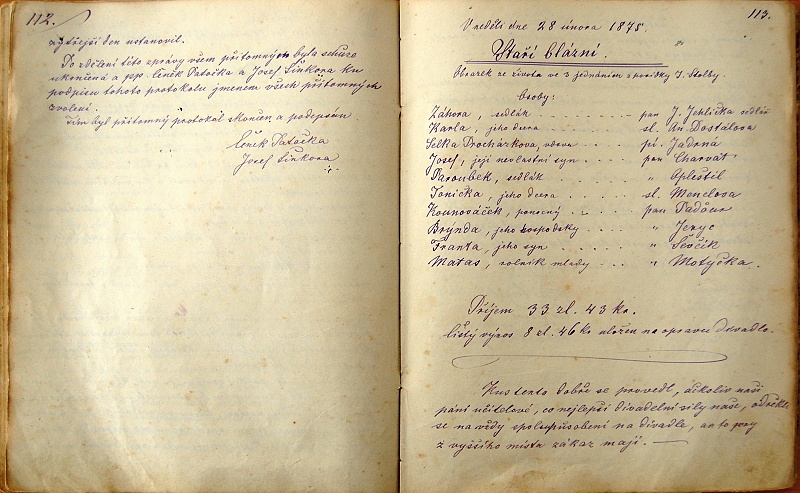 112.
zejtřejší den ustanovil.
Po sdělení této zprávy všem přítomným byla schůze
ukončená a pp. Čeněk Patočka a Josef Šinkora ku
podpisu tohoto protokolu jmenem všech přítomných
zvoleni.
Tím byl přítomný protokol skončen a podepsán
Čeněk Patočka
Josef Šinkora
113.
V neděli dne 28 února 1875.
Staří blázni.
Obrázek ze života ve 3 jednáních z povídky J. Stolby.
Osoby:
Záhora, sedlák - - - - pan J. Jehlička sedlák
Karla, jeho dcera - - - - sl. An. Dostálova
Selka Procházkova, vdova - - pí. Jadrná
Josef, její nevlastní syn - - - pan Charvát
Paroubek, sedlák - - - - " Opleštil
Tonička, jeho dcera - - - - sl. Menclova
Kounováček, ponocný - - - pan Paďour
Brynda, jeho hospodský - - - " Jeryc
Franta, jeho syn - - - - " Ševčík
Matas, rolník mladý - - - " Motyčka.
Příjem 33 zl. 43 kr.
Čistý výnos 8 zl. 46 kr uložen na opravu divadla.
Kus tento dobře se provedl, ačkoliv naši
páni učitelové, co nejlepší divadelní síly naše, odřekli
se na vždy spolupůsobení na divadle, an to prý
z vyššího místa zákaz mají. —